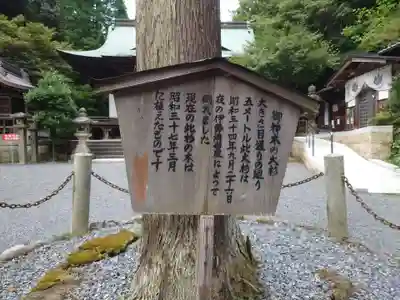 御神木の大杉
大きさ目通りの廻り
五メートル此大杉は
昭和三十四年九月二十六日
夜の伊勢湾台風によって
倒れました
現在の此杉の木は
昭和三十七年三月
に植えたものです